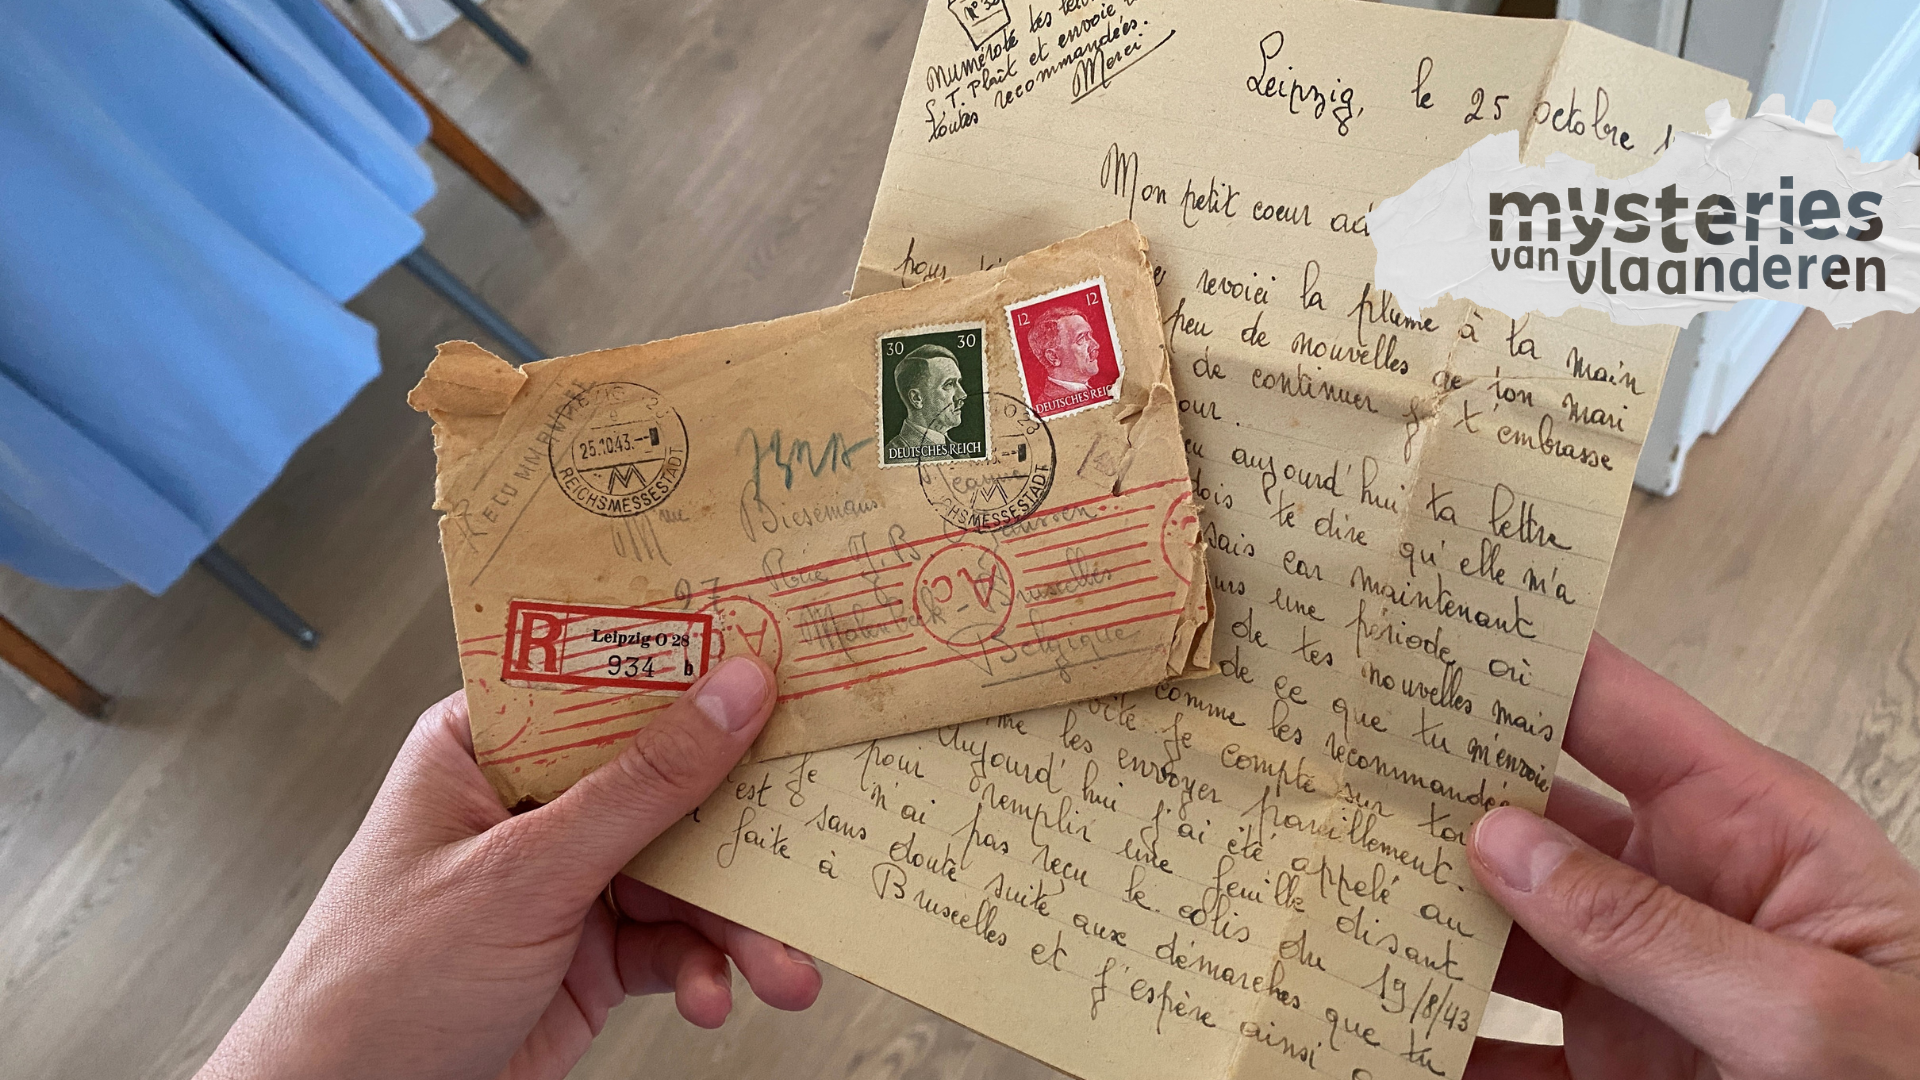 N° 30
Numérote tes
S. T. Plaît et envoie
toutes recommandées.
Merci
Leipzig, le 25 octobre 1
Mon petit coeur ad
pour
revoici la plume à la main
peu de nouvelles de ton mari
de continuer je t'embrasse
our.
eu aujourd'hui ta lettre
dois te dire qu'elle m'a
sais car maintenant
urs une période où
de tes nouvelles mais
de ce que tu m'envoie
comme les recommandées
vite je compte sur toi
me les envoyer pareillement.
Aujourd'hui j'ai été appelé au
pour remplir une feuille disant
je n'ai pas reçu le colis du 19/8/43
est sans doute suite aux démarches que tu
faite à Bruxelles et j'espère ainsi
mysteries
van vlaanderen
30 30
DEUTSCHES REICH
12 12
DEUTSCHES REIC
25.10.43.--
REICHSMESSESTADT
CHSMESSESTADT
RECOMMANDÉ
Mme Biesemans
97, Rue J. B. Janssen
Molenbeek Bruxelles
Belgique
A.C.
A.C.
R Leipzig O 28
934 b